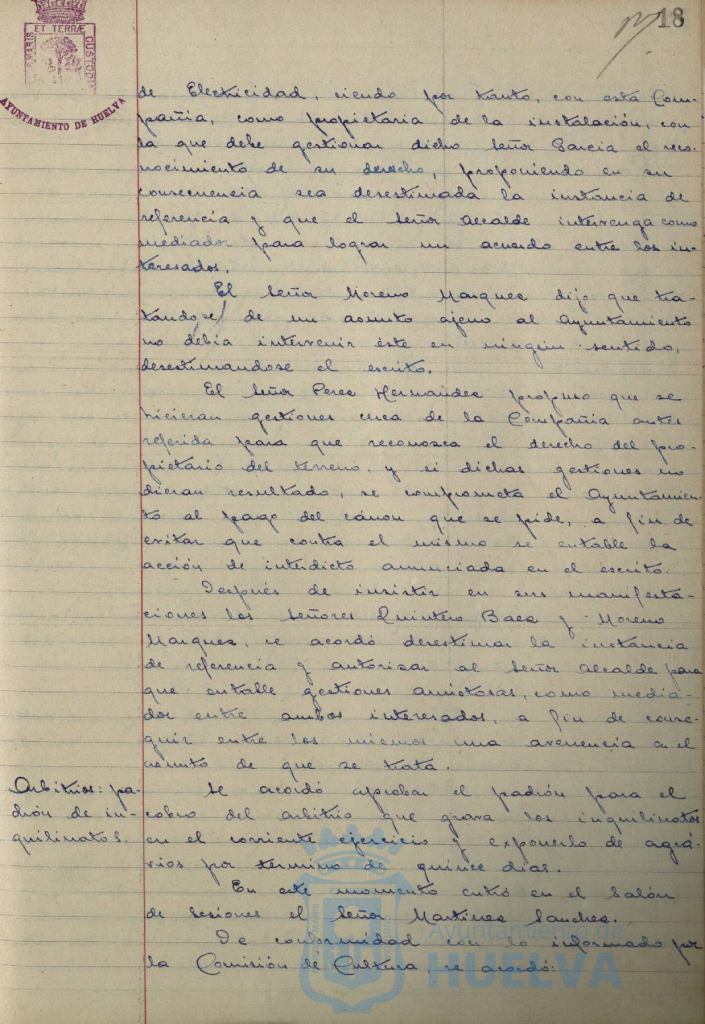 18
ET TERRÆ
MARIS
CUSTODI
AYUNTAMIENTO DE HUELVA
de Electricidad, siendo por tanto, con esta Com-
pañia, como propietaria de la instalación, con
la que debe gestionar dicho Señor Garcia el reco-
nocimiento de su derecho, proponiendo en su
consecuencia sea desestimada la instancia de
referencia y que el Señor Alcalde intervenga como
mediador para lograr un acuerdo entre los in-
teresados.
El Señor Moreno Marquez dijo que tra-
tandose de un asunto ajeno al Ayuntamiento
no debia intervenir éste en ningún sentido,
desestimandose el escrito.
El Señor Perez Hernandez propuso que se
hicieran gestiones cerca de la Compañia antes
referida para que reconozca el derecho del pro-
pietario del terreno y si dichas gestiones no
dieran resultado, se comprometa el Ayuntamien-
to al pago del cánon que se pide, a fin de
evitar que contra el mismo se entable la
acción de interdicto anunciada en el escrito.
Después de insistir en sus manifesta-
ciones los Señores Quintero Baez y Moreno
Marquez, se acordó desestimar la instancia
de referencia y autorizar al Señor Alcalde para
que entable gestiones amistosas, como media-
dor entre ambos interesados, a fin de conse-
guir entre los mismos una avenencia en el
asunto de que se trata.
Arbitrios: pa-
drón de in-
quilinatos.
Se acordó aprobar el padrón para el
cobro del arbitrio que grava los inquilinatos
en el corriente ejercicio y exponerlo de agrá-
vios por término de quince dias.
En este momento entró en el Salón
de Sesiones el Señor Martinez Sanchez.
De conformidad con lo informado por
la Comisión de Cultura, se acordó:
Ayuntamiento de
HUELVA